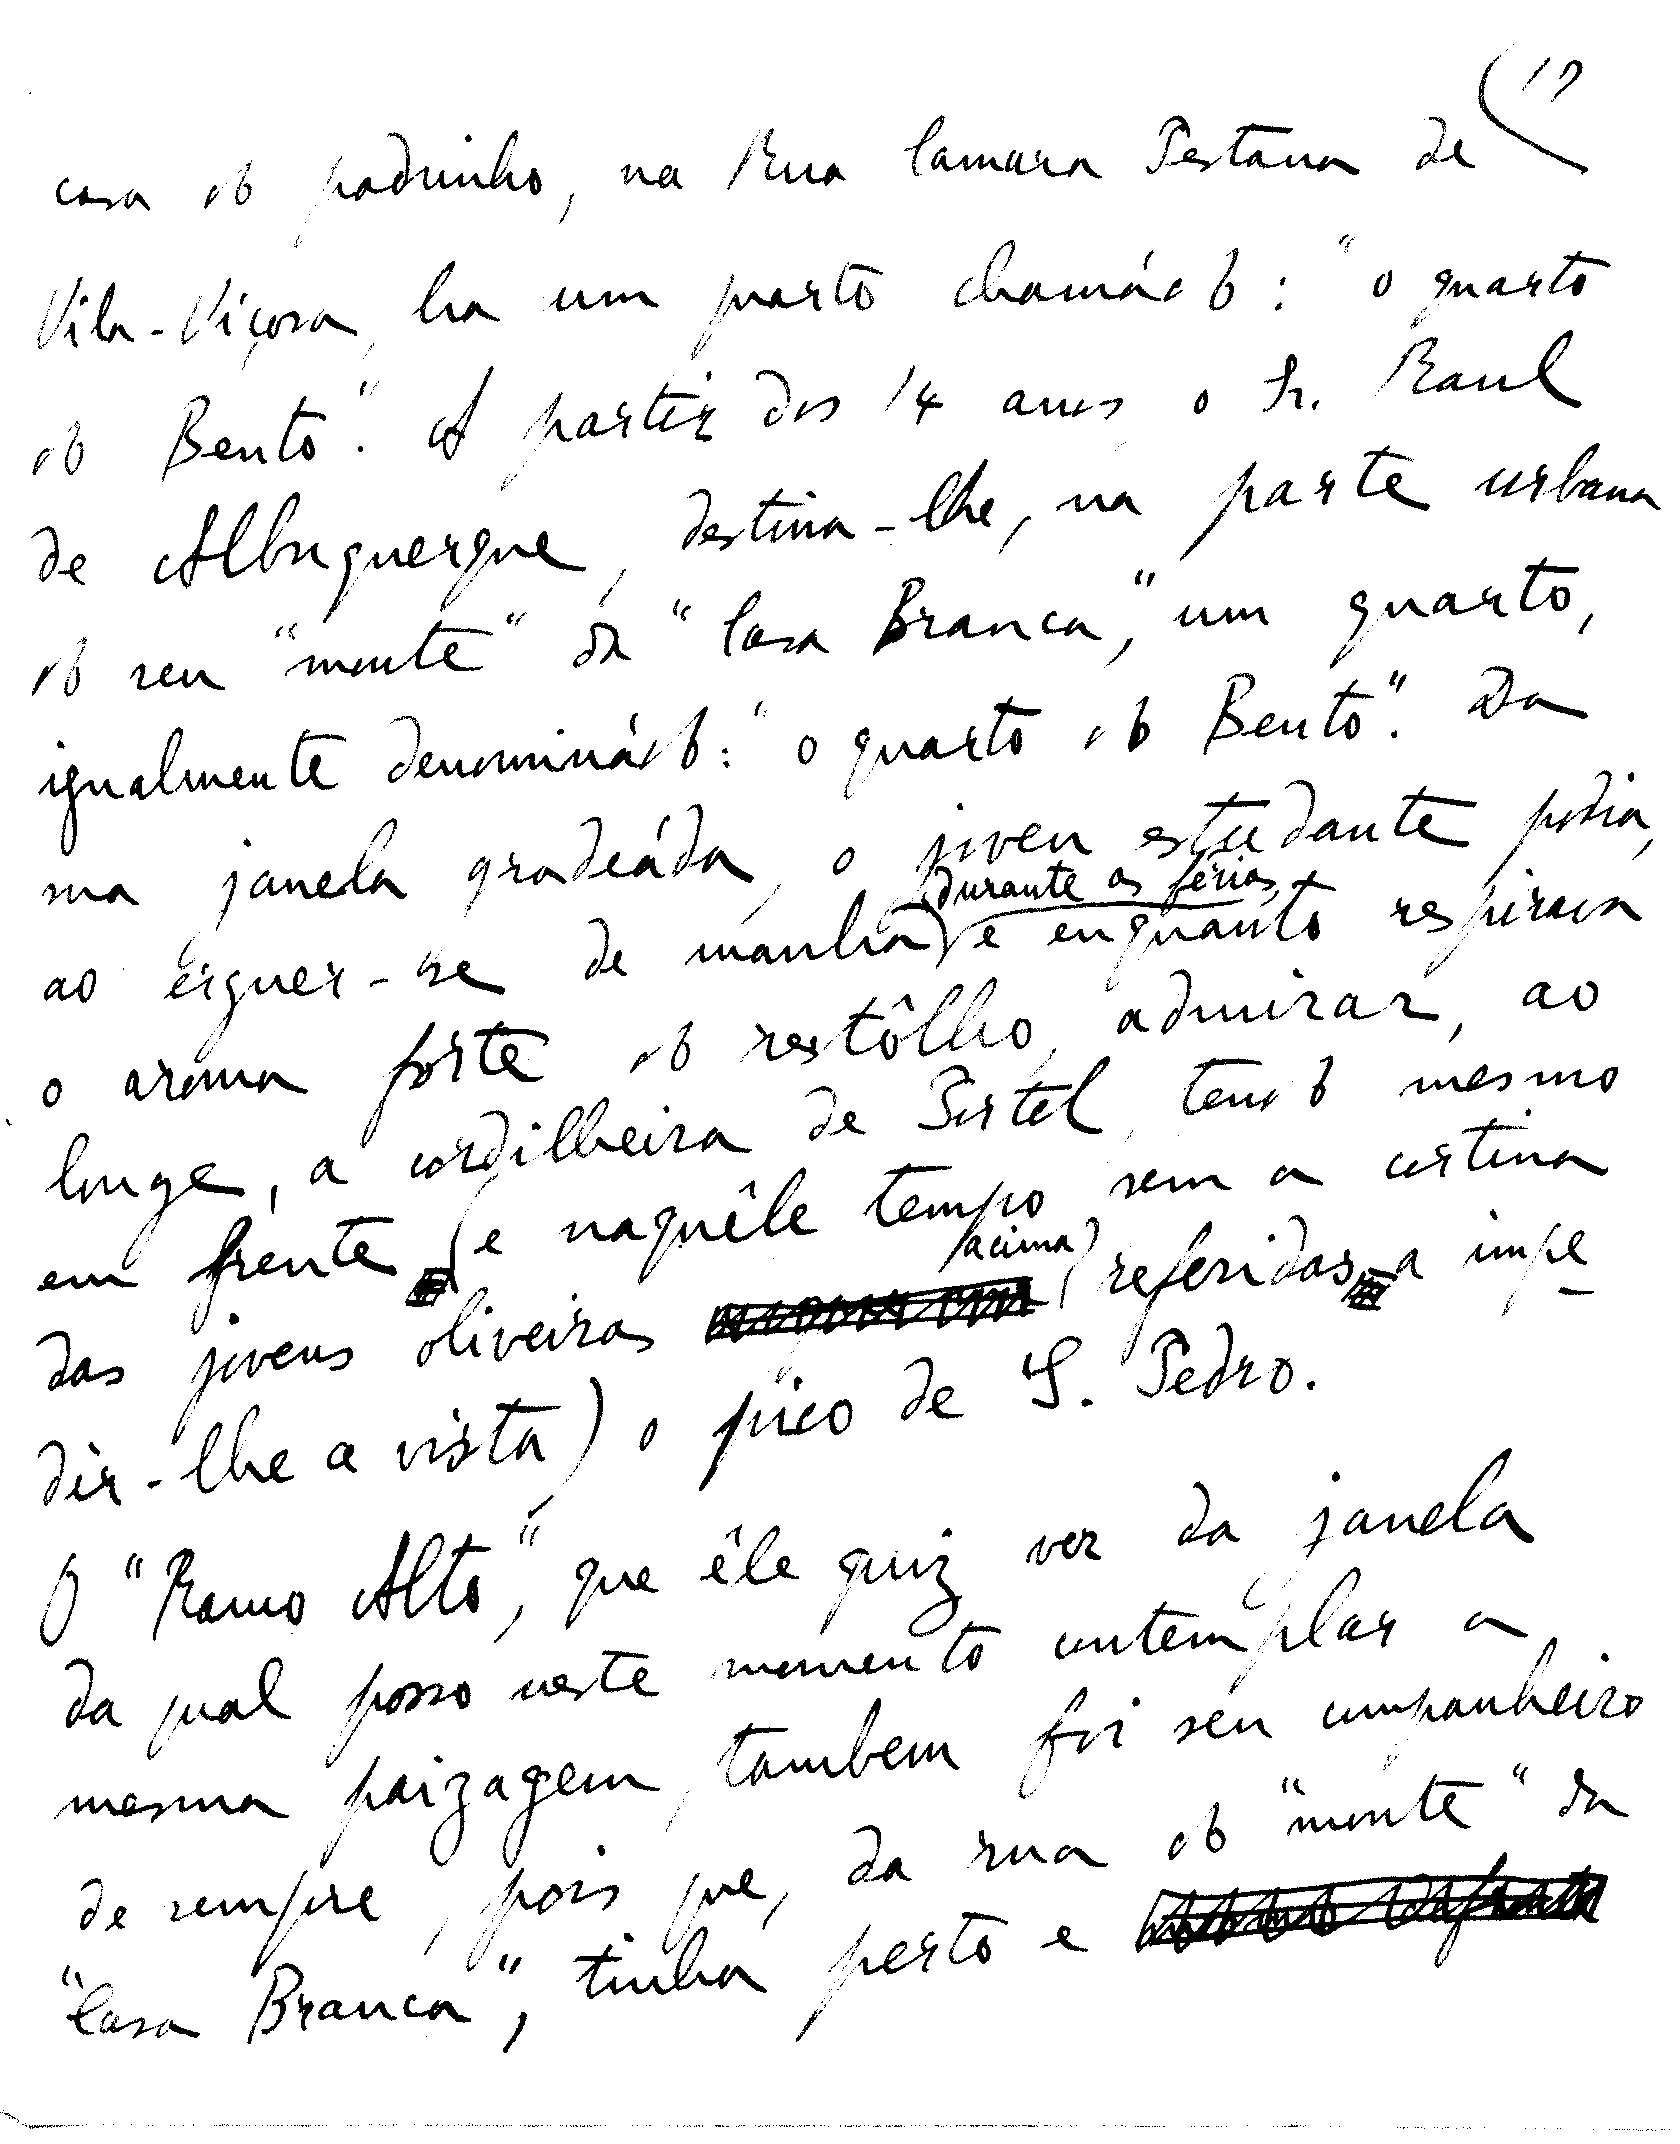 17
casa do padrinho, na Rua Camara Pestana de
Vila-Viçosa, ha um quarto chamádo: "o quarto
do Bento". A partir dos 14 anos, o Sr. Raul
de Albuquerque, destina-lhe, na parte urbana
do seu "monte" da "Casa Branca", um quarto,
igualmente denominádo: "o quarto do Bento". Da
sua janela gradeáda, o joven estudante podia,
durante as férias,
ao erguer-se de manhã, e enquanto respirava
o aroma forte do restôlho, admirar, ao
longe, a cordilheira de Portel, tendo mesmo
em frente (e naquêle tempo sem a cortina
acima
das jovens oliveiras referidas a impe-
dir-lhe a vista), o pico de S. Pedro.
O "Ramo Alto", que êle quiz ver da janela
da qual posso neste momento contemplar a
mesma paizagem, tambem foi seu companheiro
de sempre, pois que, da rua do "monte" da
"Casa Branca", tinha perto e